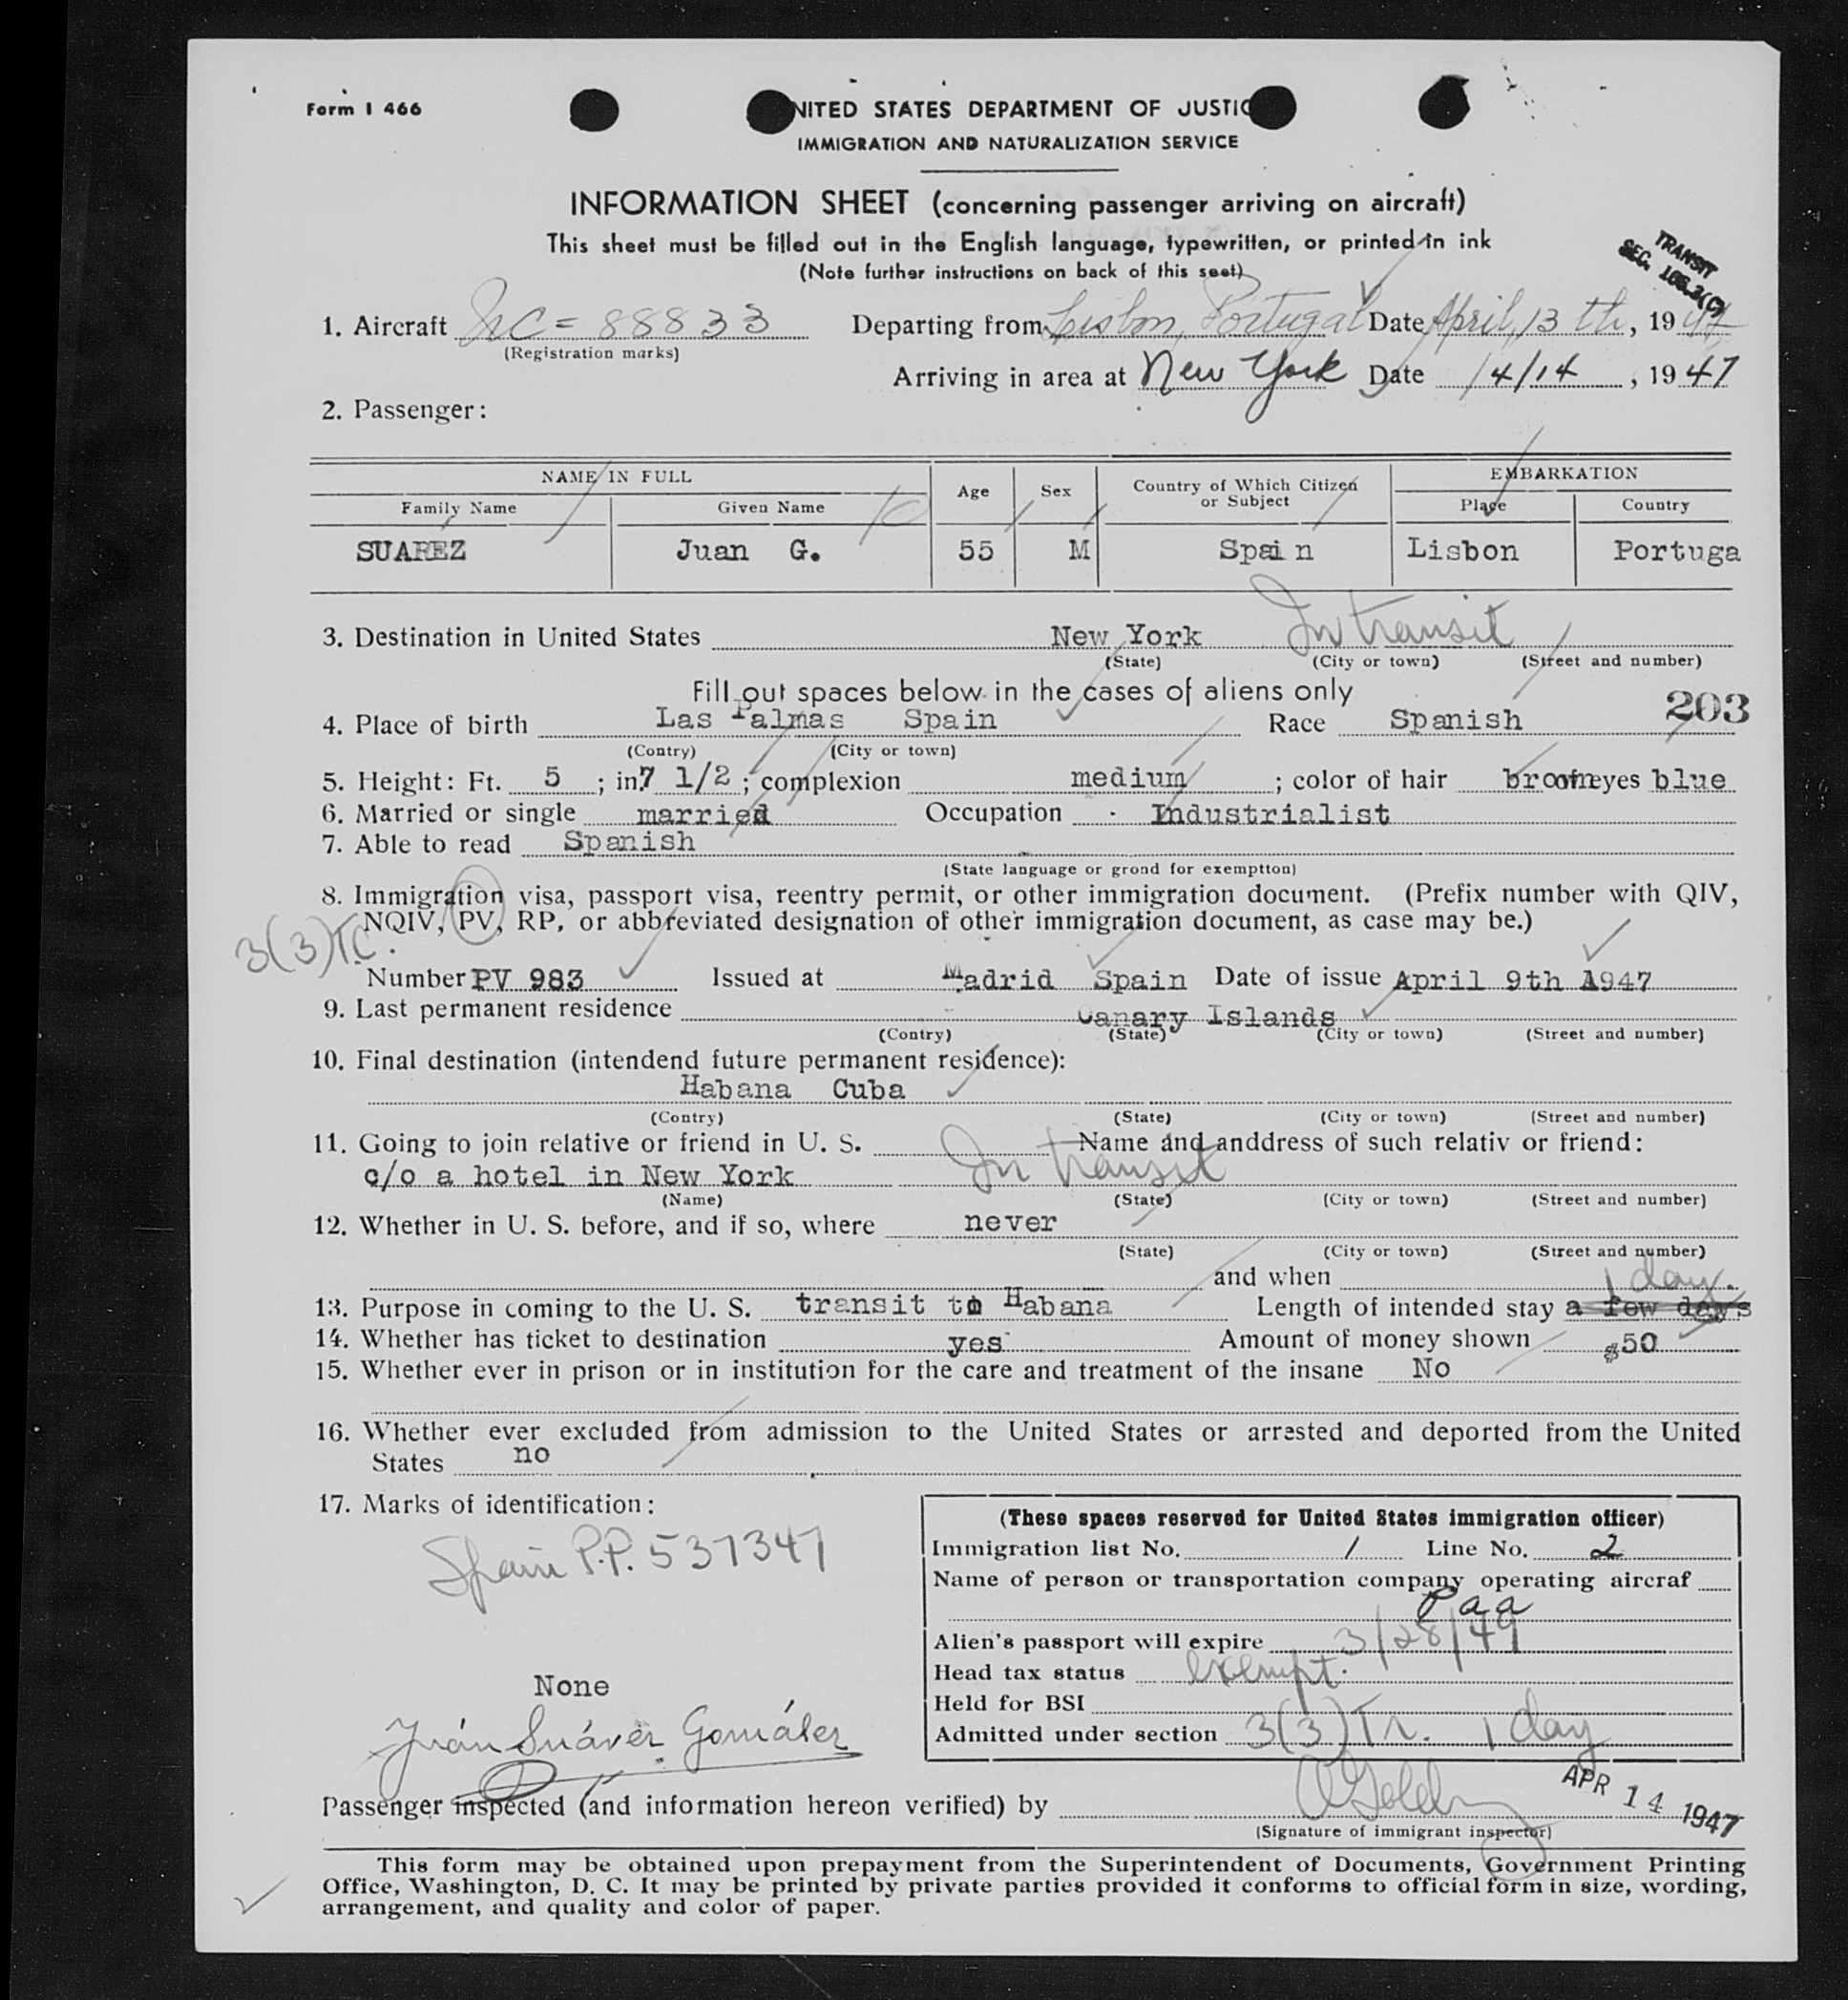 Form I 466
NITED STATES DEPARTMENT OF JUSTIC
IMMIGRATION AND NATURALIZATION SERVICE
INFORMATION SHEET (concerning passenger arriving on aircraft)
This sheet must be filled out in the English language, typewritten, or printed in ink
(Note further instructions on back of this seet)
TRANSIT
SEC. 106.3(C)
1. Aircraft NC=88833 Departing from Lisbon, Portugal Date April, 13 th, 1947
(Registration marks)
Arriving in area at New York Date 4/14, 1947
2. Passenger:
NAME IN FULL Age Sex Country of Which Citizen or Subject EMBARKATION
Family Name Given Name Place Country
SUAREZ Juan G. 55 M Spain Lisbon Portuga
3. Destination in United States New York In transit
(State) (City or town) (Street and number)
Fill out spaces below in the cases of aliens only
203
4. Place of birth Las Palmas Spain Race Spanish
(Contry) (City or town)
5. Height: Ft. 5 ; in. 7 1/2 ; complexion medium ; color of hair brown eyes blue
6. Married or single married Occupation Industrialist
7. Able to read Spanish
(State language or grond for exemptton)
8. Immigration visa, passport visa, reentry permit, or other immigration document. (Prefix number with QIV,
NQIV, PV, RP, or abbreviated designation of other immigration document, as case may be.)
3(3)T.C.
Number PV 983 Issued at Madrid Spain Date of issue April 9th 1947
9. Last permanent residence Canary Islands
(Contry) (State) (City or town) (Street and number)
10. Final destination (intendend future permanent residence):
Habana Cuba
(Contry) (State) (City or town) (Street and number)
11. Going to join relative or friend in U. S. Name and anddress of such relativ or friend:
c/o a hotel in New York In transit
(Name) (State) (City or town) (Street and number)
12. Whether in U. S. before, and if so, where never
(State) (City or town) (Street and number)
and when
1 day.
13. Purpose in coming to the U. S. transit to Habana Length of intended stay a few days
14. Whether has ticket to destination yes Amount of money shown $50
15. Whether ever in prison or in institution for the care and treatment of the insane No
16. Whether ever excluded from admission to the United States or arrested and deported from the United
States no
17. Marks of identification:
Spain P.P. 537347
None
Juán Suárez González
(These spaces reserved for United States immigration officer)
Immigration list No. 1 Line No. 2
Name of person or transportation company operating aircraf
Paa
Alien's passport will expire 3/28/49
Head tax status exempt.
Held for BSI
Admitted under section 3(3) Tr. 1 day
APR 14 1947
Passenger inspected (and information hereon verified) by
(Signature of immigrant inspector)
This form may be obtained upon prepayment from the Superintendent of Documents, Government Printing
Office, Washington, D. C. It may be printed by private parties provided it conforms to official form in size, wording,
arrangement, and quality and color of paper.